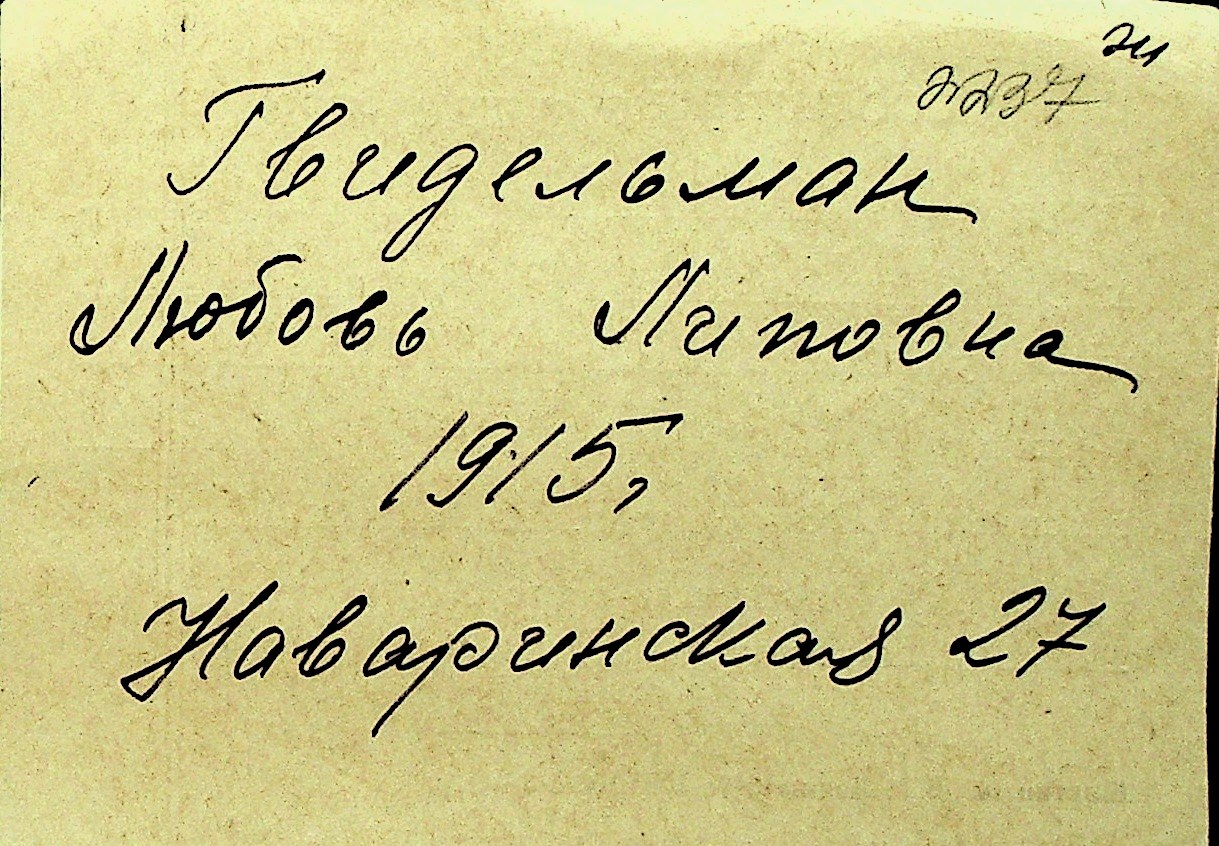 2237
Гвидельман
Любовь Липовна
1915,
Наваринская 27